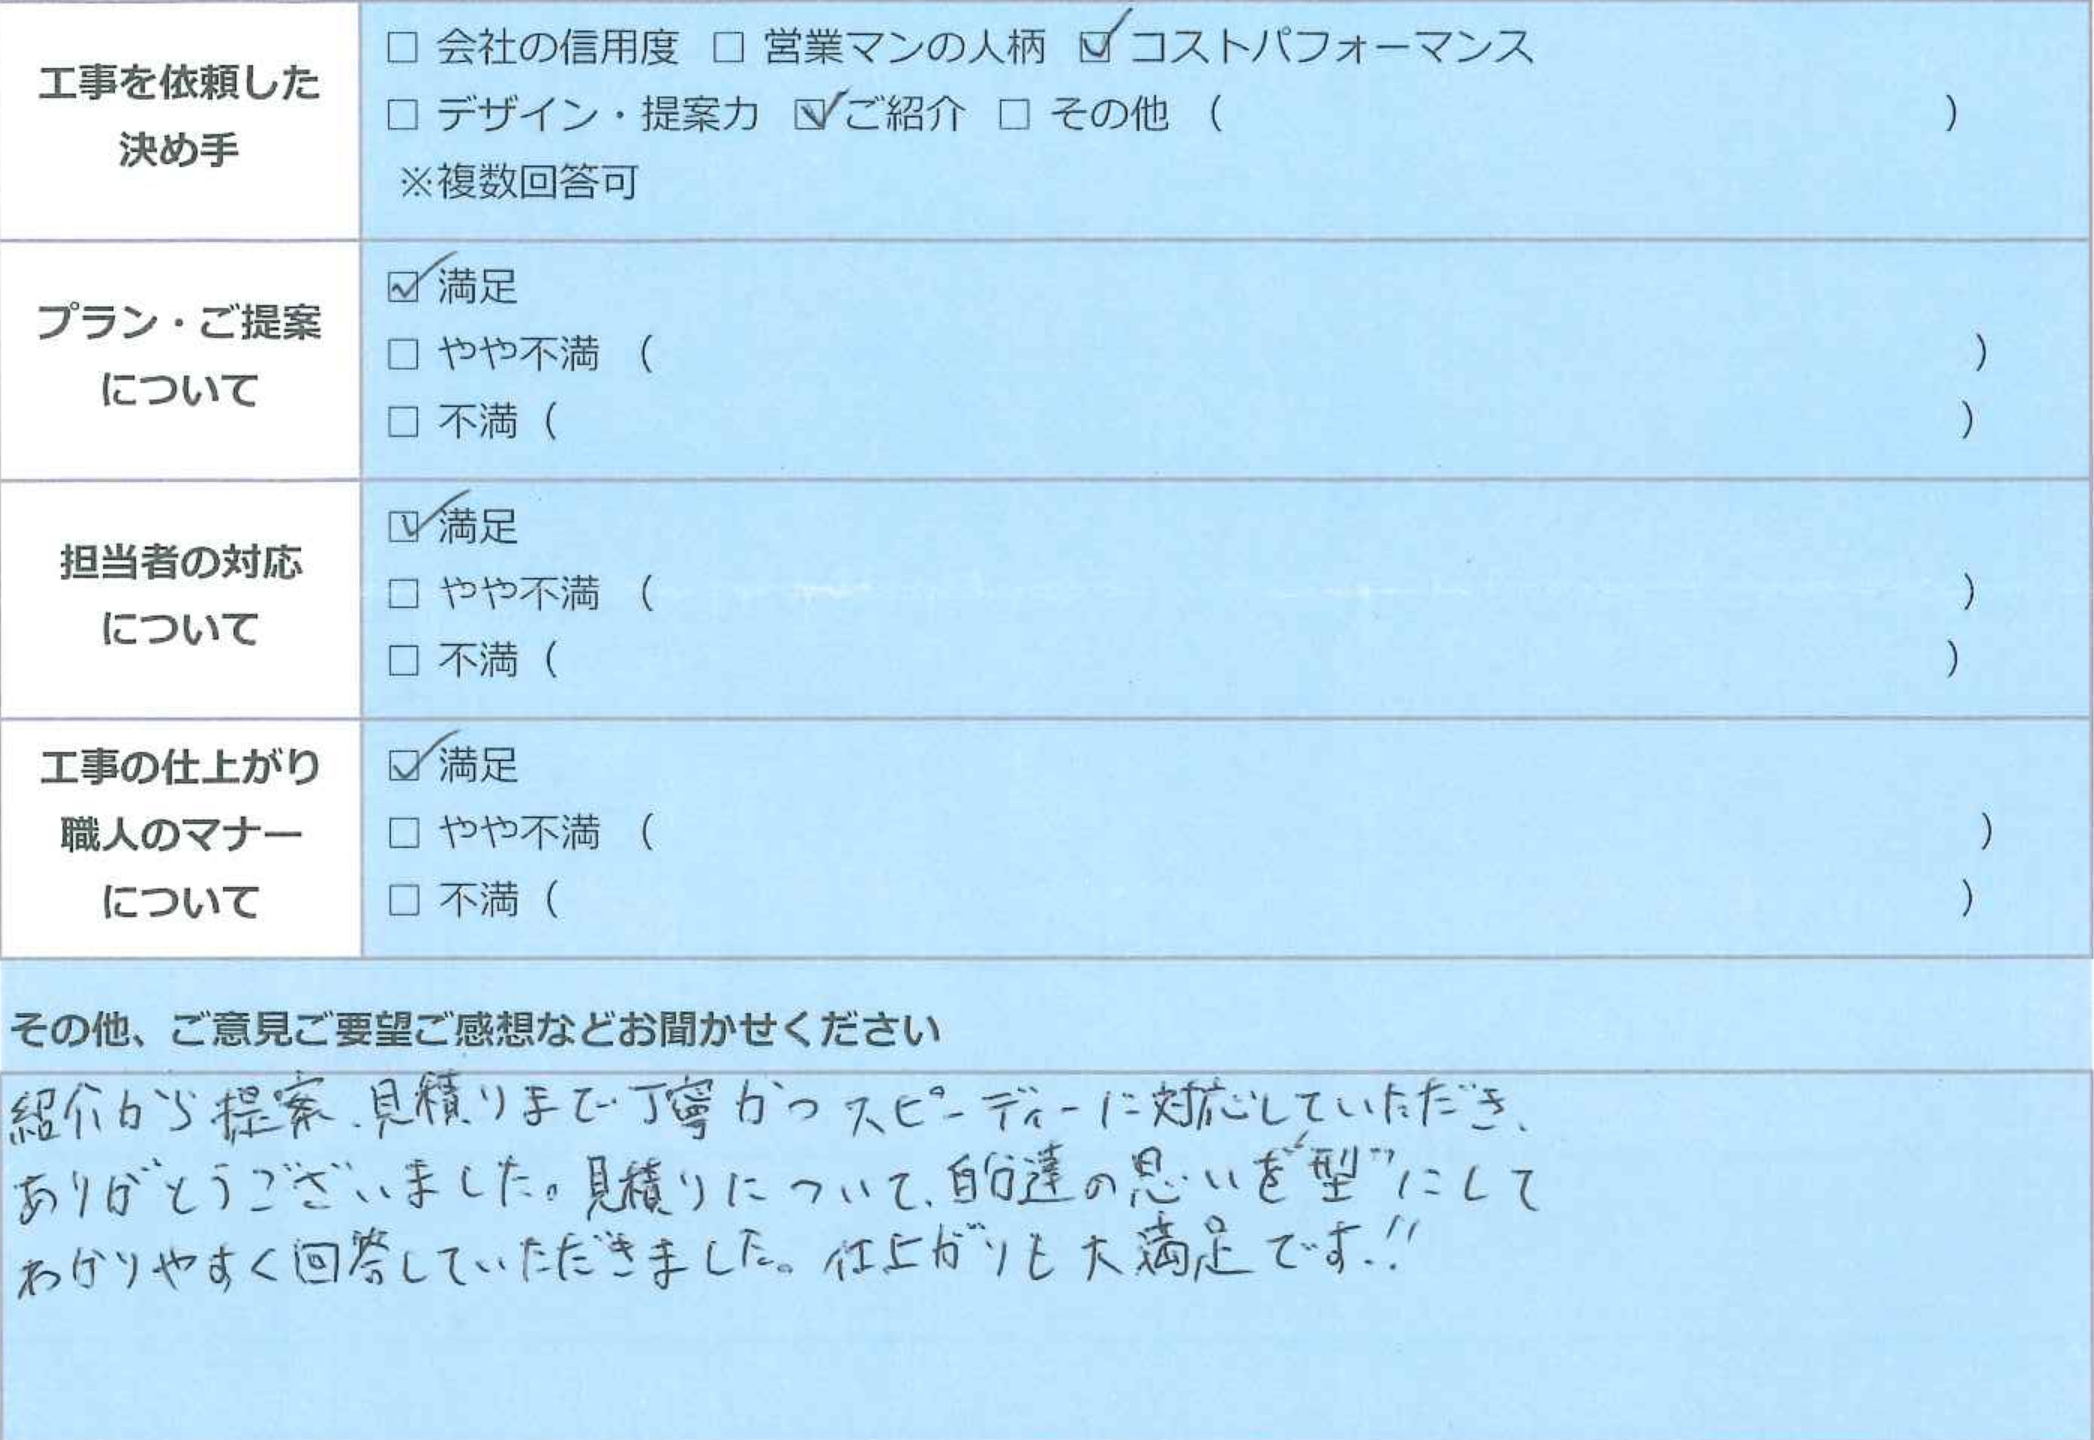 工事を依頼した
決め手
□ 会社の信用度 □ 営業マンの人柄 ☑ コストパフォーマンス
□ デザイン・提案力 ☑ ご紹介 □ その他 ( )
※複数回答可
プラン・ご提案
について
☑ 満足
□ やや不満 ( )
□ 不満 ( )
担当者の対応
について
☑ 満足
□ やや不満 ( )
□ 不満 ( )
工事の仕上がり
職人のマナー
について
☑ 満足
□ やや不満 ( )
□ 不満 ( )
その他、ご意見ご要望ご感想などお聞かせください
紹介から提案、見積りまで丁寧かつスピーディーに対応していただき、
ありがとうございました。見積りについて、自分達の思いを“型”にして
わかりやすく回答していただきました。仕上がりも大満足です!!